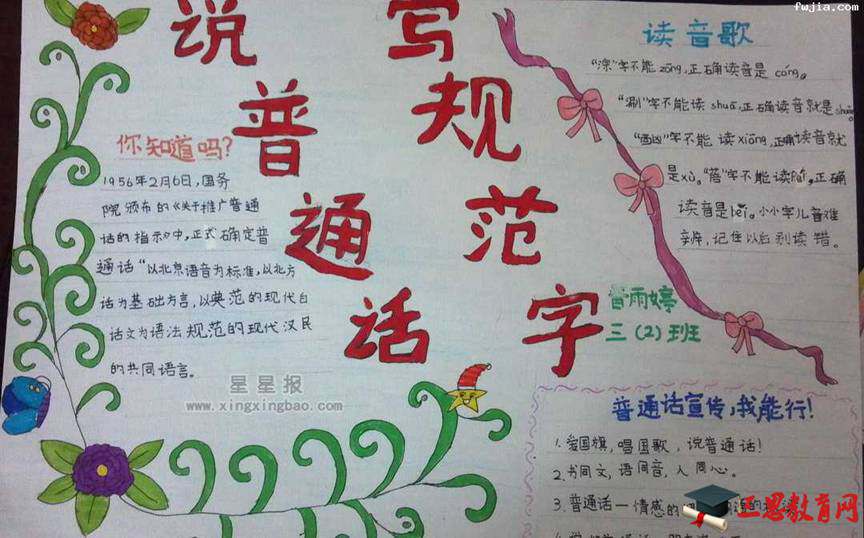 fwjia.com
说普通话
写规范字
你知道吗?
1956年2月6日,国务
院颁布的《关于推广普通
话的指示》中,正式确定普
通话“以北京语音为标准,以北方
话为基础方言,以典范的现代白
话文为语法规范的现代汉民
的共同语言。
星星报
www.xingxingbao.com
读音歌
“淙”字不能zōng,正确读音是cóng。
“涮”字不能读shuā,正确读音就是
“酗”字不能读xiōng,正确读音就
是xù。“蓓”字不能读Péi,正确
读音是bèi。小小字儿音难
辨,记住以后别读错。
雨婷
三(2)班
普通话宣传,我能行!
1.爱国旗,唱国歌,说普通话!
2.书同文,语同音,人同心。
3.普通话一情感的
工思教育网